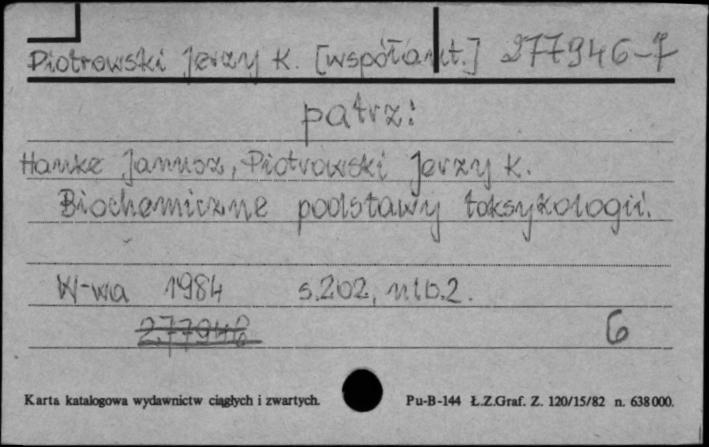 Piotrowski Jerzy K. [współaut.] 277946-7
patrz:
Hanke Janusz, Piotrowski Jerzy K.
Biochemiczne podstawy toksykologii.
W-wa 1984 s.202, nlb.2.
277946 6
Karta katalogowa wydawnictw ciągłych i zwartych. Pu-B-144 Ł.Z.Graf. Z. 120/15/82 n. 638000.